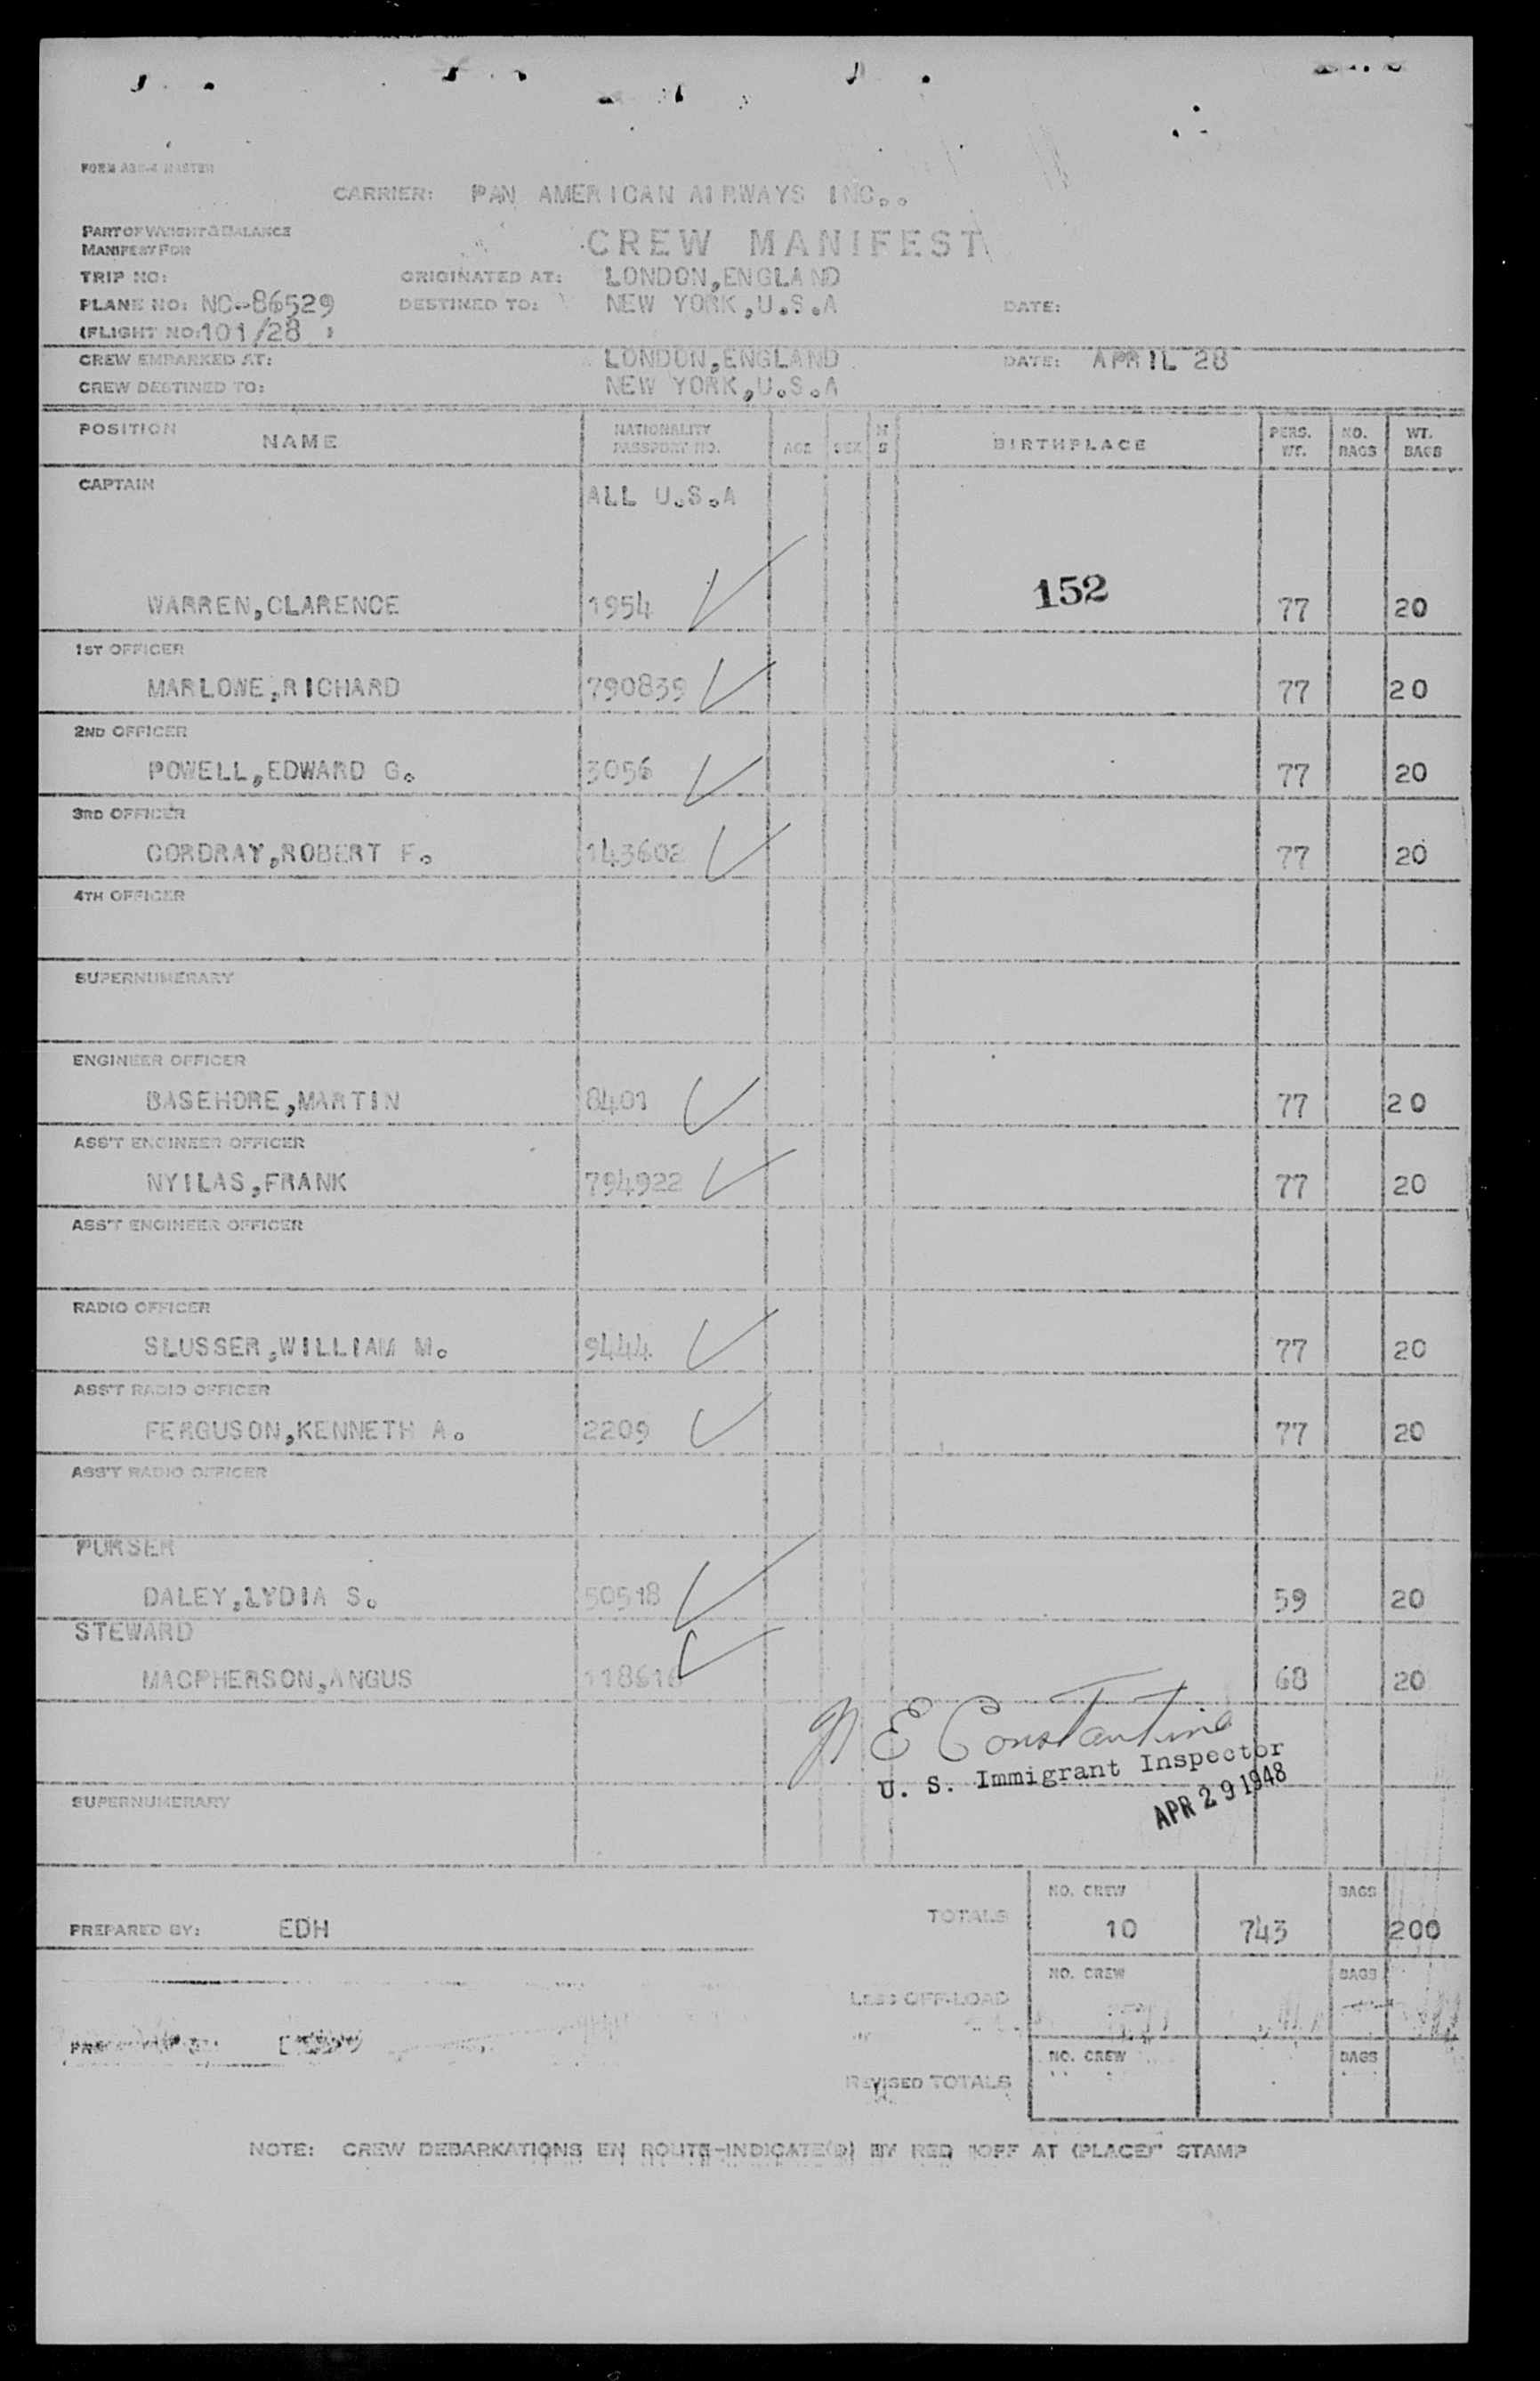 FORM ABC-4 MASTER
CARRIER: PAN AMERICAN AIRWAYS INC..
PART OF WEIGHT & BALANCE
MANIFEST FOR
CREW MANIFEST
TRIP NO: ORIGINATED AT: LONDON,ENGLAND
PLANE NO: NC-86529 DESTINED TO: NEW YORK,U.S.A DATE:
(FLIGHT NO:101/28 )
CREW EMBARKED AT: LONDON,ENGLAND DATE: APRIL 28
CREW DESTINED TO: NEW YORK,U.S.A
POSITION NAME NATIONALITY PASSPORT NO. AGE SEX M S BIRTHPLACE PERS. WT. NO. BAGS WT. BAGS
CAPTAIN ALL U.S.A
152
WARREN,CLARENCE 1954 77 20
1ST OFFICER
MARLOWE,RICHARD 790839 77 20
2ND OFFICER
POWELL,EDWARD G. 3056 77 20
3RD OFFICER
CORDRAY,ROBERT F. 143602 77 20
4TH OFFICER
SUPERNUMERARY
ENGINEER OFFICER
BASEHORE,MARTIN 8401 77 20
ASS'T ENGINEER OFFICER
NYILAS,FRANK 794922 77 20
ASS'T ENGINEER OFFICER
RADIO OFFICER
SLUSSER,WILLIAM M. 9444 77 20
ASS'T RADIO OFFICER
FERGUSON,KENNETH A. 2209 77 20
ASS'T RADIO OFFICER
PURSER
DALEY,LYDIA S. 50518 59 20
STEWARD
MACPHERSON,ANGUS 68 20
E Constantine
U. S. Immigrant Inspector
APR 29 1948
SUPERNUMERARY
NO. CREW BAGS
PREPARED BY: EDH TOTALS 10 743 200
NO. CREW BAGS
LESS OFF-LOAD
NO. CREW BAGS
REVISED TOTALS
NOTE: CREW DEBARKATIONS EN ROUTE-INDICATE(D) BY RED "OFF AT (PLACE)" STAMP